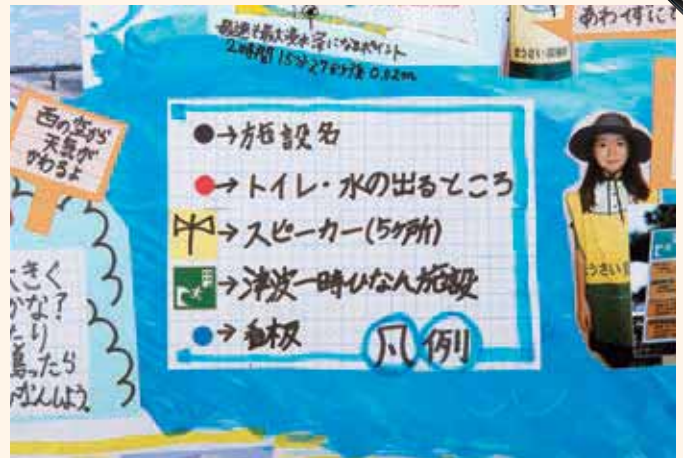 最大浸水深になるポイント
2時間15分27秒後 0.02m
あわてずにも
ぼうさい探検隊
西の空から
天気が
かわるよ
●→施設名
●→トイレ・水の出るところ
→スピーカー(5ヶ所)
→津波一時ひなん施設
●→看板
凡例
きく
かな?
たり
鳴ったら
ひなんしよう。
うさい